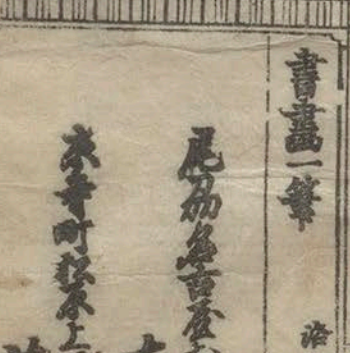 書畫一筆
洛
尾州名古屋
京寺町松原上